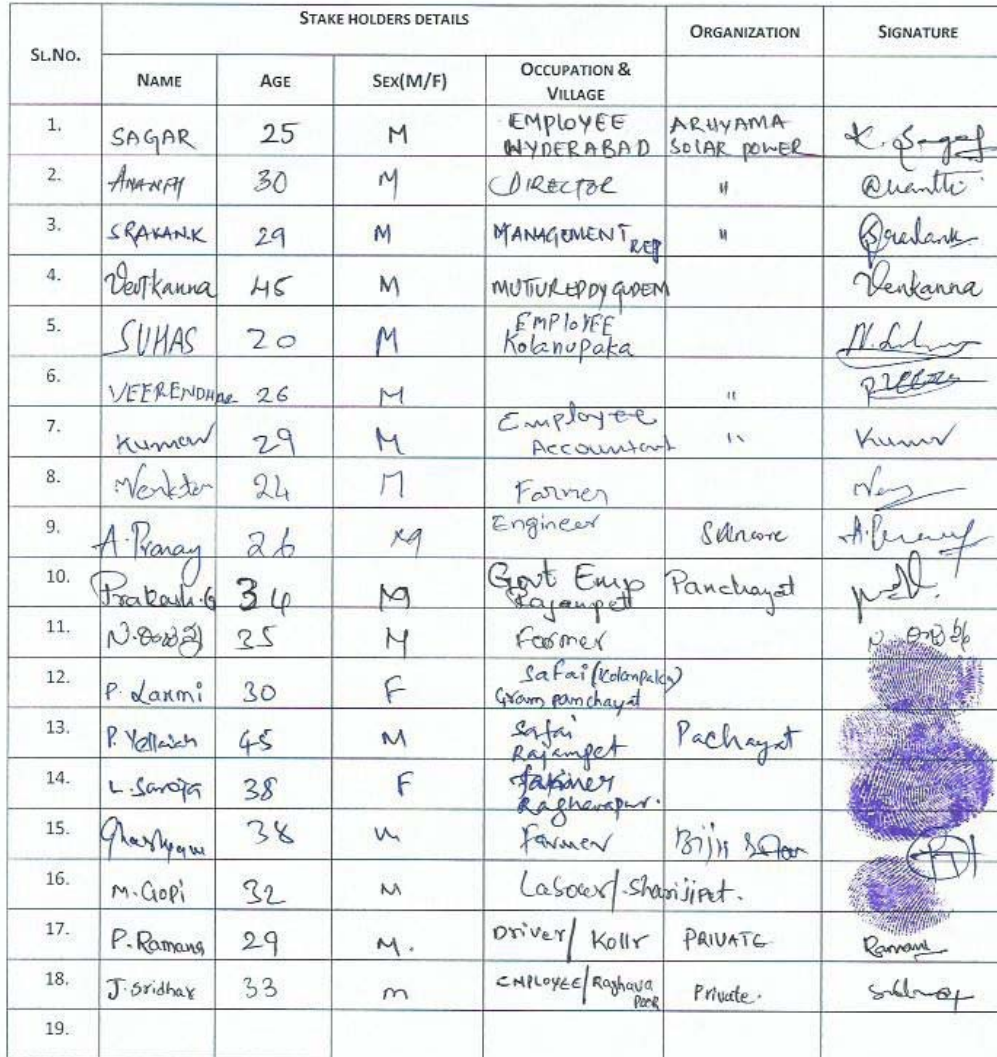 STAKE HOLDERS DETAILS ORGANIZATION SIGNATURE
SL.NO. NAME AGE SEX(M/F) OCCUPATION & VILLAGE
1. SAGAR 25 M EMPLOYEE HYDERABAD ARHYAMA SOLAR POWER K. Sagar
2. ANANTH 30 M DIRECTOR "
3. SRAVANK 29 M MANAGEMENT REP "
4. Venkanna 45 M MUTUREDDYGUDEM Venkanna
5. SUHAS 20 M EMPLOYEE Kolanupaka
6. VEERENDHAR 26 M "
7. Kumar 29 M Employee Accountant " Kumar
8. 24 M Farmer
9. A. Pranay 26 M Engineer
10. Prakash.G 34 M Govt Emp Rajampett Panchayat
11. 35 M Farmer
12. P. Laxmi 30 F Safai (Kolanpaka) Gram panchayat
13. P. Yellaiah 45 M Safai Rajampet Pachayat
14. L. Saroja 38 F farmer Raghavapur.
15. 38 M Farmer
16. M. Gopi 32 M Labour/ Sharijipet.
17. P. Ramana 29 M. Driver/ Kollr PRIVATE
18. J. Sridhar 33 m EMPLOYEE/Raghava Poor Private.
19.